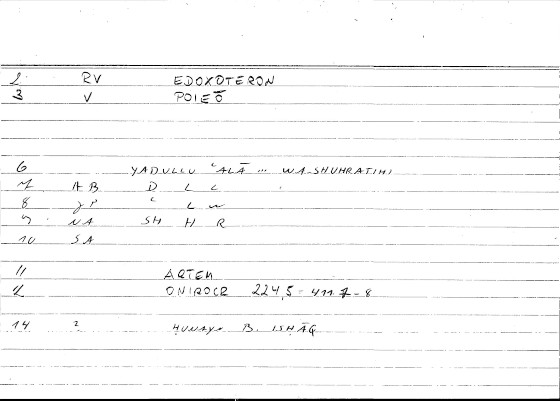 2 RV EDOXOTERON
3 V POIEŌ
6 YADULLU ʿALĀ ... WA-SHUHRATIHI
7 AB D L L
8 P ʿ L W
9 NA SH H R
10 SA
11 ARTEM
12 ONIROCR 224,5 - 411.7-8
14 2 ḤUNAYN B. ISḤĀQ